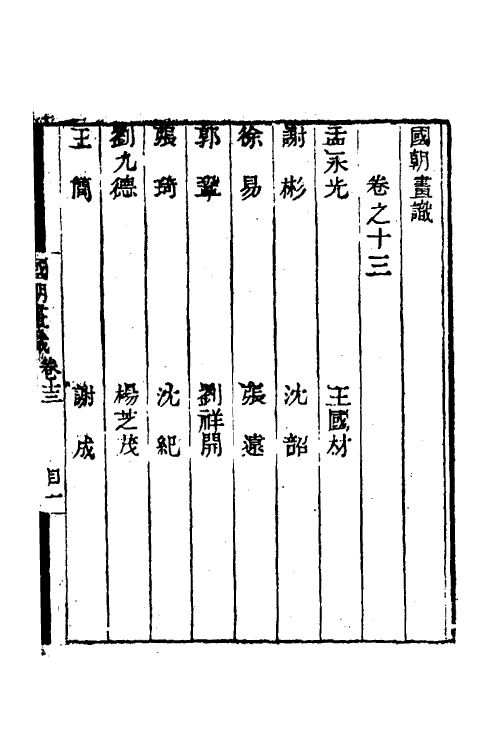 國朝畫識
卷之十三
孟永光 王國材
謝彬 沈韶
徐易 張遠
郭鞏 劉祥開
張琦 沈紀
劉九德 楊芝茂
王簡 謝成
國朝畫識 卷十三 目一